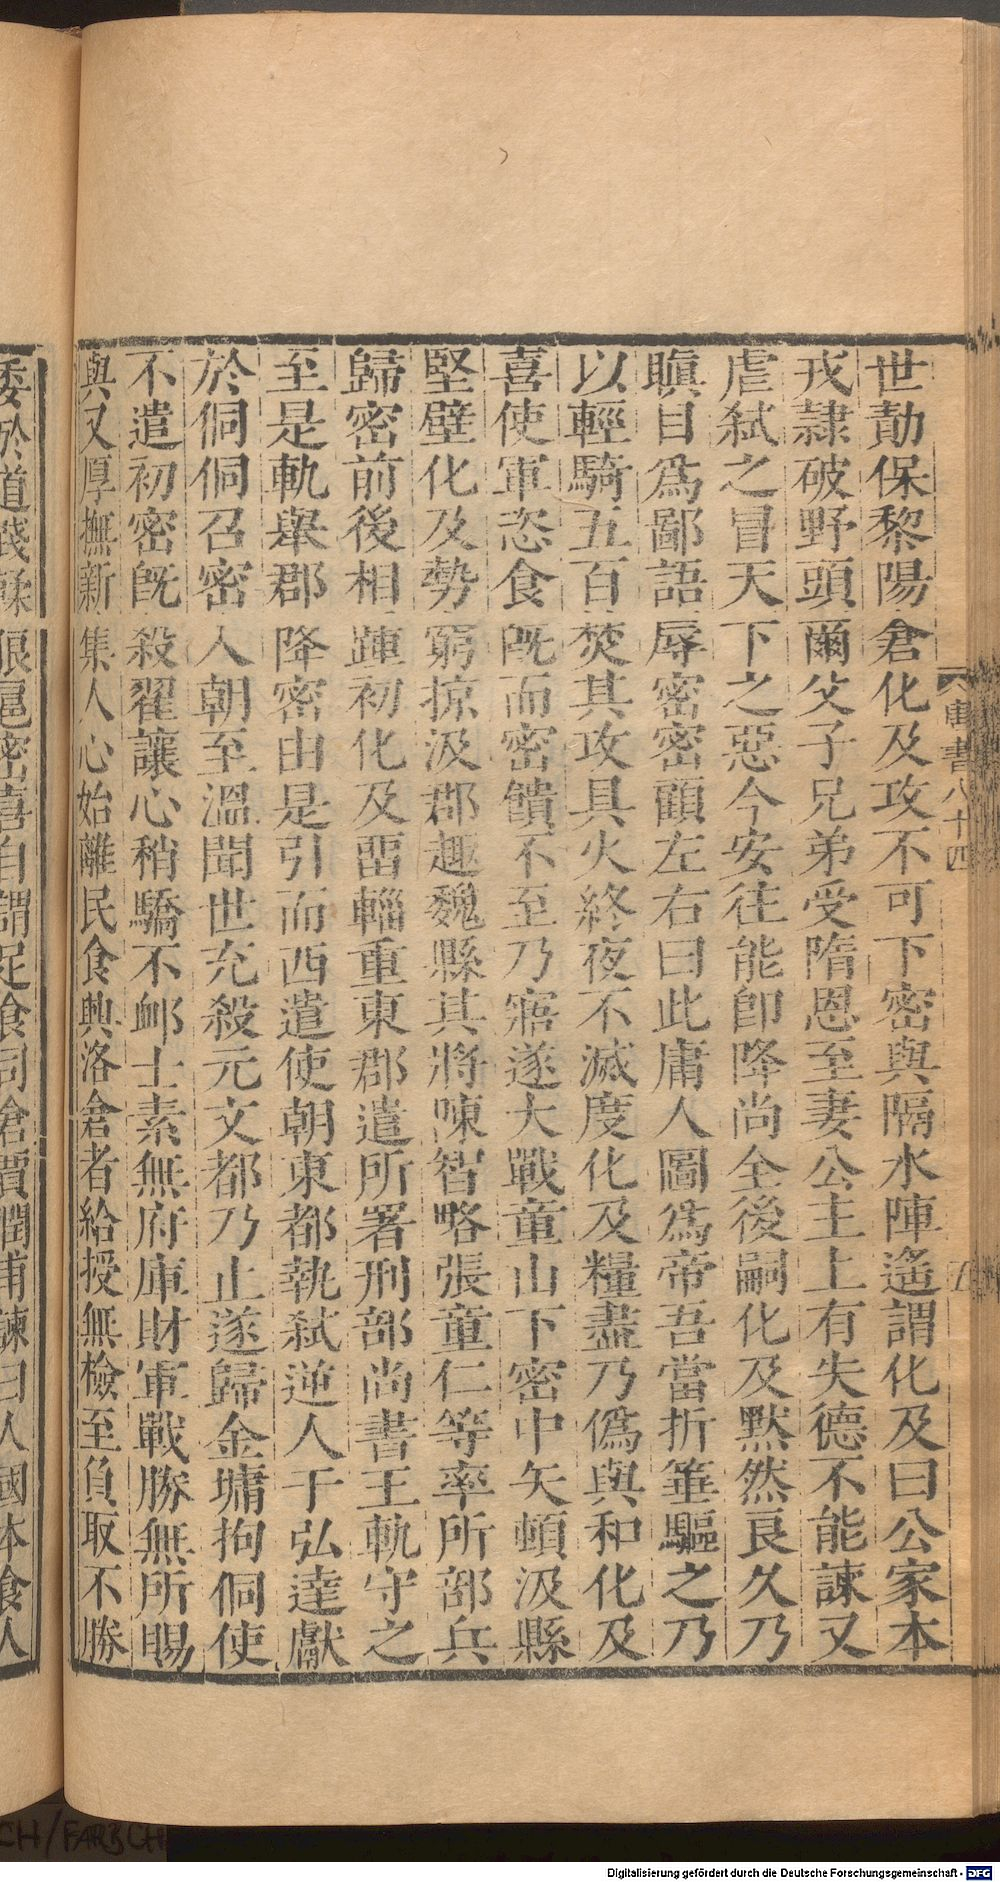 世勣保黎陽倉化及攻不可下密與隔水陣遙謂化及曰公家本
戎隷破野頭爾父子兄弟受隋恩至妻公主上有失德不能諫又
虐弑之冒天下之惡今安往能卽降尚全後嗣化及默然良久乃
瞋目爲鄙語辱密密顧左右曰此庸人圖爲帝吾當折箠驅之乃
以輕騎五百焚其攻具火終夜不滅度化及糧盡乃僞與和化及
喜使軍恣食旣而密饋不至乃寤遂大戰童山下密中矢頓汲縣
堅壁化及勢窮掠汲郡趣魏縣其將陳智略張童仁等率所部兵
歸密前後相踵初化及畱輜重東郡遣所署刑部尚書王軌守之
至是軌舉郡降密由是引而西遣使朝東都執弑逆人于弘達獻
於侗侗召密入朝至溫聞世充殺元文都乃止遂歸金墉拘侗使
不遣初密旣殺翟讓心稍驕不卹士素無府庫財軍戰勝無所賜
與又厚撫新集人心始離民食興洛倉者給授無檢至負取不勝
委於道踐輮狼扈密喜自謂足食司倉賈潤甫諫曰人國本食人
唐書八十四
Digitalisierung gefördert durch die Deutsche Forschungsgemeinschaft - DFG